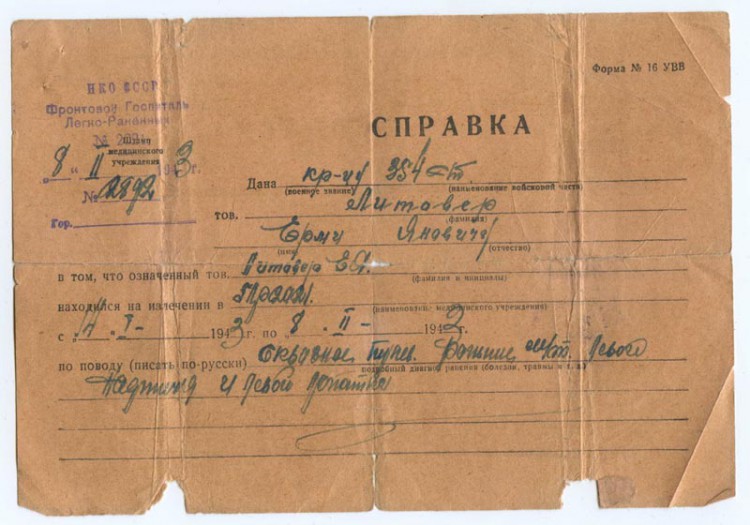 Форма № 16 УВВ
НКО СССР
Фронтовой Госпиталь
Легко-Раненных
№
Штамп
медицинского
учреждения
СПРАВКА
„8 " II 1943г.
№ 2892
Гор.
Дана кр-цу 354
(военное звание) (наименование войсковой части)
тов. Литовер
(фамилия)
Яновичу
(имя) (отчество)
в том, что означенный тов. Литовер Е.Я.
(фамилия и инициалы)
находился на излечении в
(наименование медицинского учреждения)
с „ " I - 1943г. по 8 . II - 1942г.
по поводу (писать по-русски) Сквозное пулев. левого
подробный диагноз ранения (болезни, травмы и т. д.)
и левой лопатки